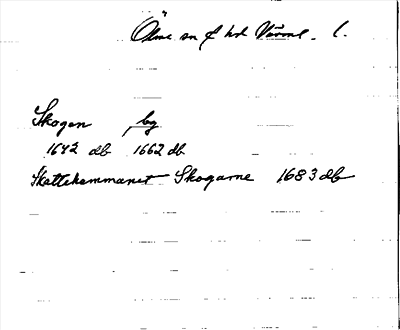 Ölme sn f hd Värml. l.
Skogen by
1642 db 1662 db
Skattehemmanet Skogarne 1683 db